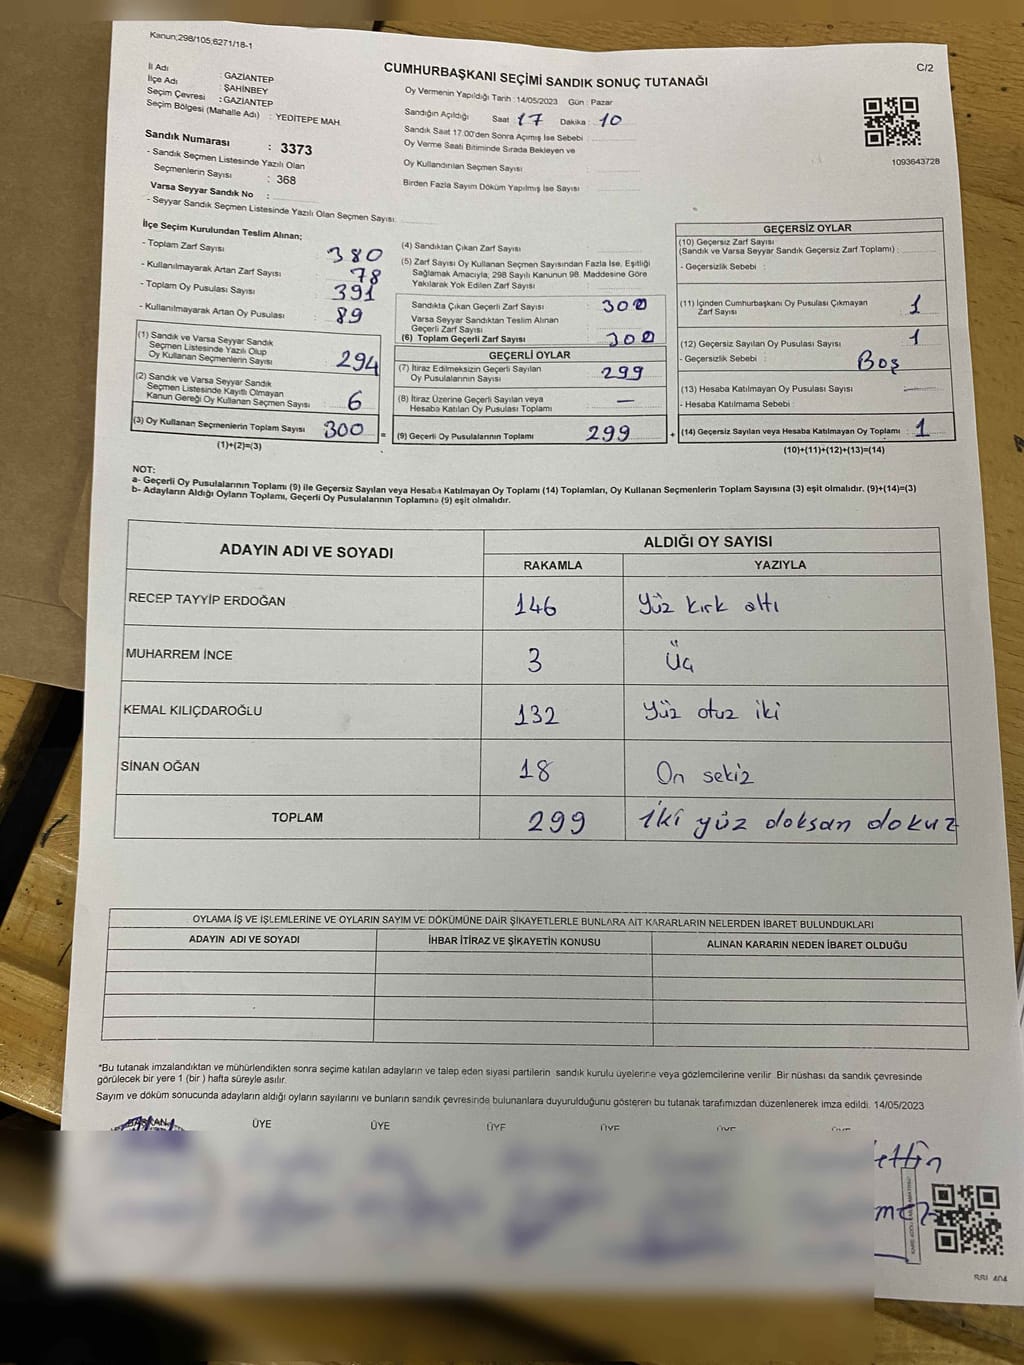 Kanun;298/105,6271/18-1
C/2
CUMHURBAŞKANI SEÇİMİ SANDIK SONUÇ TUTANAĞI
İl Adı : GAZİANTEP
İlçe Adı : ŞAHİNBEY
Seçim Çevresi : GAZİANTEP
Seçim Bölgesi (Mahalle Adı) : YEDİTEPE MAH.
Sandık Numarası : 3373
- Sandık Seçmen Listesinde Yazılı Olan
Seçmenlerin Sayısı : 368
Varsa Seyyar Sandık No :
- Seyyar Sandık Seçmen Listesinde Yazılı Olan Seçmen Sayısı:
Oy Vermenin Yapıldığı Tarih : 14/05/2023 Gün : Pazar
Sandığın Açıldığı Saat : 17 Dakika : 10
Sandık Saat 17.00'den Sonra Açımış İse Sebebi :
Oy Verme Saati Bitiminde Sırada Bekleyen ve
Oy Kullandırılan Seçmen Sayısı :
Birden Fazla Sayım Döküm Yapılmış İse Sayısı :
1093643728
İlçe Seçim Kurulundan Teslim Alınan;
- Toplam Zarf Sayısı : 380
- Kullanılmayarak Artan Zarf Sayısı : 78
- Toplam Oy Pusulası Sayısı : 391
- Kullanılmayarak Artan Oy Pusulası : 89
(1) Sandık ve Varsa Seyyar Sandık
Seçmen Listesinde Yazılı Olup
Oy Kullanan Seçmenlerin Sayısı : 294
(2) Sandık ve Varsa Seyyar Sandık
Seçmen Listesinde Kayıtlı Olmayan
Kanun Gereği Oy Kullanan Seçmen Sayısı : 6
(3) Oy Kullanan Seçmenlerin Toplam Sayısı : 300
(1)+(2)=(3)
(4) Sandıktan Çıkan Zarf Sayısı
(5) Zarf Sayısı Oy Kullanan Seçmen Sayısından Fazla İse, Eşitliği
Sağlamak Amacıyla; 298 Sayılı Kanunun 98. Maddesine Göre
Yakılarak Yok Edilen Zarf Sayısı :
Sandıkta Çıkan Geçerli Zarf Sayısı : 300
Varsa Seyyar Sandıktan Teslim Alınan
Geçerli Zarf Sayısı
(6) Toplam Geçerli Zarf Sayısı : 300
GEÇERLİ OYLAR
(7) İtiraz Edilmeksizin Geçerli Sayılan
Oy Pusulalarının Sayısı : 299
(8) İtiraz Üzerine Geçerli Sayılan veya
Hesaba Katılan Oy Pusulası Toplamı : —
= (9) Geçerli Oy Pusulalarının Toplamı : 299
GEÇERSİZ OYLAR
(10) Geçersiz Zarf Sayısı
(Sandık ve Varsa Seyyar Sandık Geçersiz Zarf Toplamı) :
- Geçersizlik Sebebi :
(11) İçinden Cumhurbaşkanı Oy Pusulası Çıkmayan
Zarf Sayısı : 1
(12) Geçersiz Sayılan Oy Pusulası Sayısı : 1
- Geçersizlik Sebebi : Boş
(13) Hesaba Katılmayan Oy Pusulası Sayısı : —
- Hesaba Katılmama Sebebi :
+ (14) Geçersiz Sayılan veya Hesaba Katılmayan Oy Toplamı : 1
(10)+(11)+(12)+(13)=(14)
NOT:
a- Geçerli Oy Pusulalarının Toplamı (9) ile Geçersiz Sayılan veya Hesaba Katılmayan Oy Toplamı (14) Toplamları, Oy Kullanan Seçmenlerin Toplam Sayısına (3) eşit olmalıdır. (9)+(14)=(3)
b- Adayların Aldığı Oyların Toplamı, Geçerli Oy Pusulalarının Toplamına (9) eşit olmalıdır.
ADAYIN ADI VE SOYADI
ALDIĞI OY SAYISI
RAKAMLA YAZIYLA
RECEP TAYYİP ERDOĞAN 146 yüz kırk altı
MUHARREM İNCE 3 Üç
KEMAL KILIÇDAROĞLU 132 yüz otuz iki
SİNAN OĞAN 18 On sekiz
TOPLAM 299 iki yüz doksan dokuz
OYLAMA İŞ VE İŞLEMLERİNE VE OYLARIN SAYIM VE DÖKÜMÜNE DAİR ŞİKAYETLERLE BUNLARA AİT KARARLARIN NELERDEN İBARET BULUNDUKLARI
ADAYIN ADI VE SOYADI İHBAR İTİRAZ VE ŞİKAYETİN KONUSU ALINAN KARARIN NEDEN İBARET OLDUĞU
*Bu tutanak imzalandıktan ve mühürlendikten sonra seçime katılan adayların ve talep eden siyasi partilerin sandık kurulu üyelerine veya gözlemcilerine verilir Bir nüshası da sandık çevresinde
görülecek bir yere 1 (bir ) hafta süreyle asılır.
Sayım ve döküm sonucunda adayların aldığı oyların sayılarını ve bunların sandık çevresinde bulunanlara duyurulduğunu gösteren bu tutanak tarafımızdan düzenlenerek imza edildi. 14/05/2023
BAŞKAN ÜYE ÜYE ÜYE ÜYE ÜYE